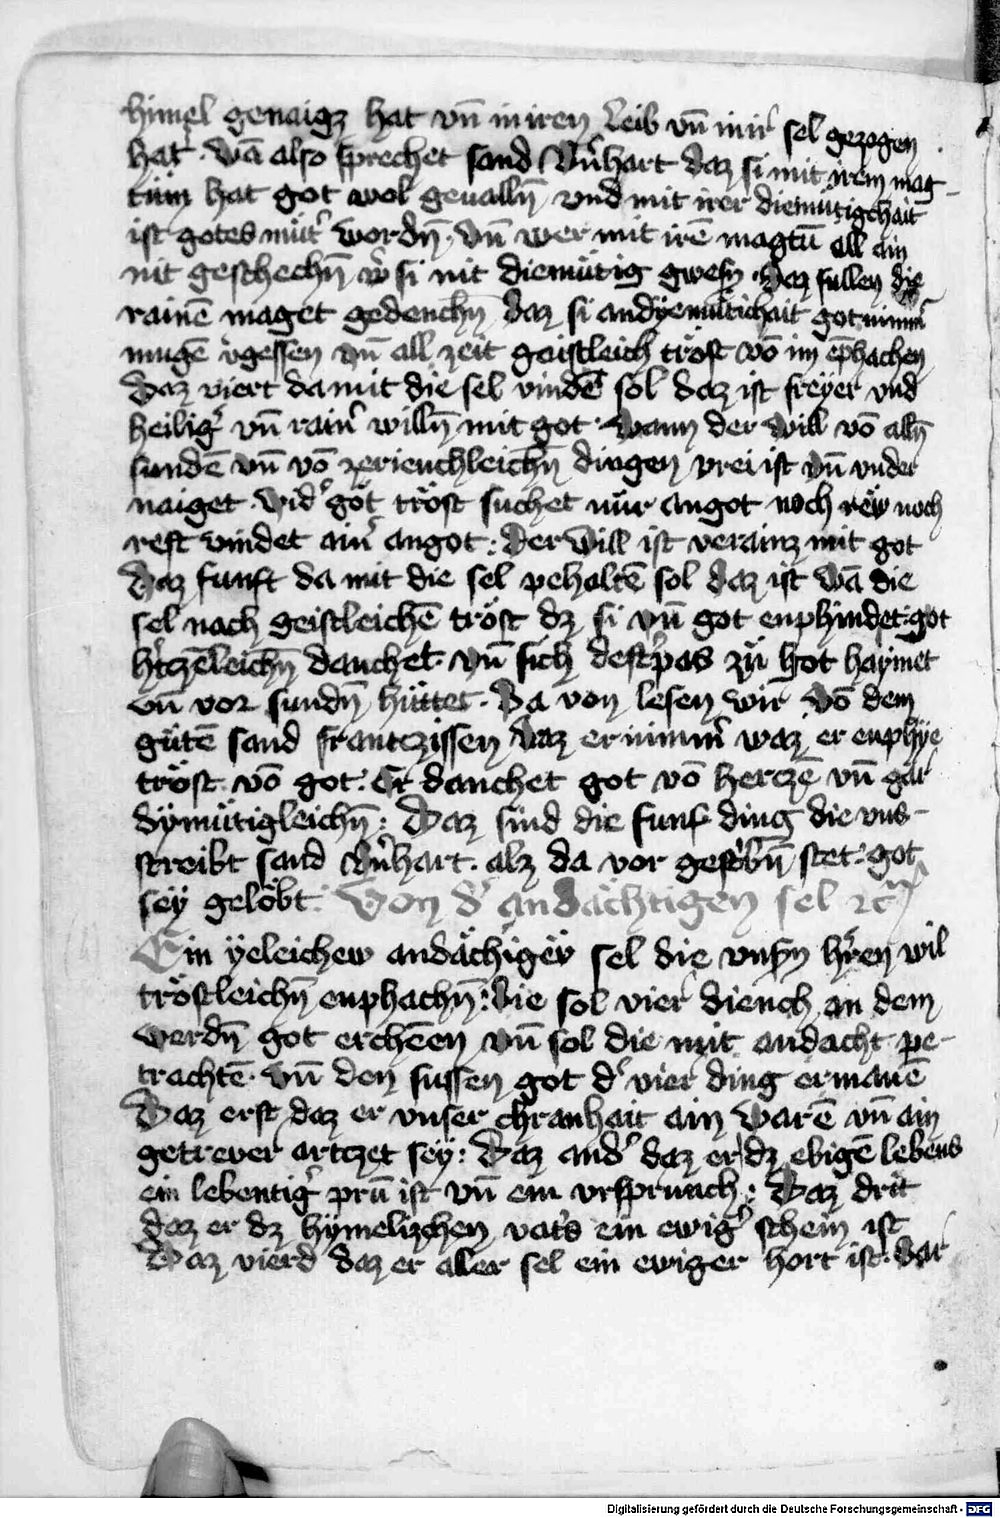 himel genaigz hat vn̄ in iren Leib vn̄ in ir sel gezogen
hat. Wā also sprechet sand Ber̄hart daz si mit irem mag-
tüm hat got wol geuallñ vnd mit irer diemütigchait
ist gotes müt' wordñ. vn̄ wer mit irē magtū all ain
nit geschechñ w' si nit diemütig gwesn. Daz sullen die
rainē maget gedenchñ daz si an dyemüticḣait got nimm'
mugē v'gessen vn̄ all zeit geistleich tröst vō im ephachen
Daz viert da mit die sel vindē sol daz ist freyer vnd
heilig' vn̄ rain' willñ mit got. Wann der will vō allñ
sundē vn̄ vō zerieuchleichñ dingen vrei ist vn̄ vnder
naiget. wid' got tröst suchet nür an got noch rëw noch
rest vindet ain' an got: Der will ist verainz mit got
Daz funft da mit die sel pehaltē sol daz ist wā die
sel nach geistleichē tröst dz si vn̄ got enphindet: got
h'czēleichñ danchet. vn̄ sich dest'pas zü got haymet
vn̄ vor sundñ hüttet. Da von lesen wir vō dem
gütē sand franczissen daz er nimm' waz er enphÿe
tröst. vō got. Er danchet got vō herczē vn̄ gar
dÿmütigleichñ: Daz sind die funf ding die vns-
streibt sand Ber̄hart. alz da vor gesc'bñ stet. got
sey gelöbt. Von d' andächtigen sel ꝛcͫ
Ein yeleichew andächigew sel die vnsn h'ren wil
tröstleichñ enphachñ: die sol vier diench an dem
werdñ got erchēen vn̄ sol die mit andacht pe-
trachtē. vn̄ den sussen got d' vier ding ermanē
Daz erst daz er vnser chranhait ain warē vn̄ ain
getrewer artczet sey: Daz and' daz er dz ebigē lebens
ein lebentig' prū ist vn̄ ein vrsprunch: Daz drit
daz er dz hymelizchen vat's ein ewig' schein ist
Daz vierd daz er aller sel ein ewiger hort ist. Dar
Digitalisierung gefördert durch die Deutsche Forschungsgemeinschaft - DFG